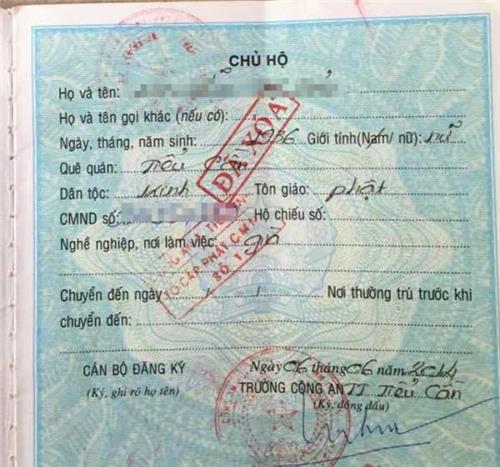 CHỦ HỘ
Họ và tên:
Họ và tên gọi khác (nếu có):
Ngày, tháng, năm sinh: 1936 Giới tính(Nam/ nữ): nữ
Quê quán: Tiểu Cần
Dân tộc: Kinh Tôn giáo: phật
CMND số: Hộ chiếu số:
Nghề nghiệp, nơi làm việc: già
Chuyển đến ngày / / Nơi thường trú trước khi
chuyển đến:
CÁN BỘ ĐĂNG KÝ
(Ký, ghi rõ họ tên)
Ngày 06 tháng 06 năm 2014
TRƯỞNG CÔNG AN TT Tiểu Cần
(Ký, đóng dấu)
ĐÃ XÓA
ĐÃ CẤP PHÁT CMND
SỐ 1